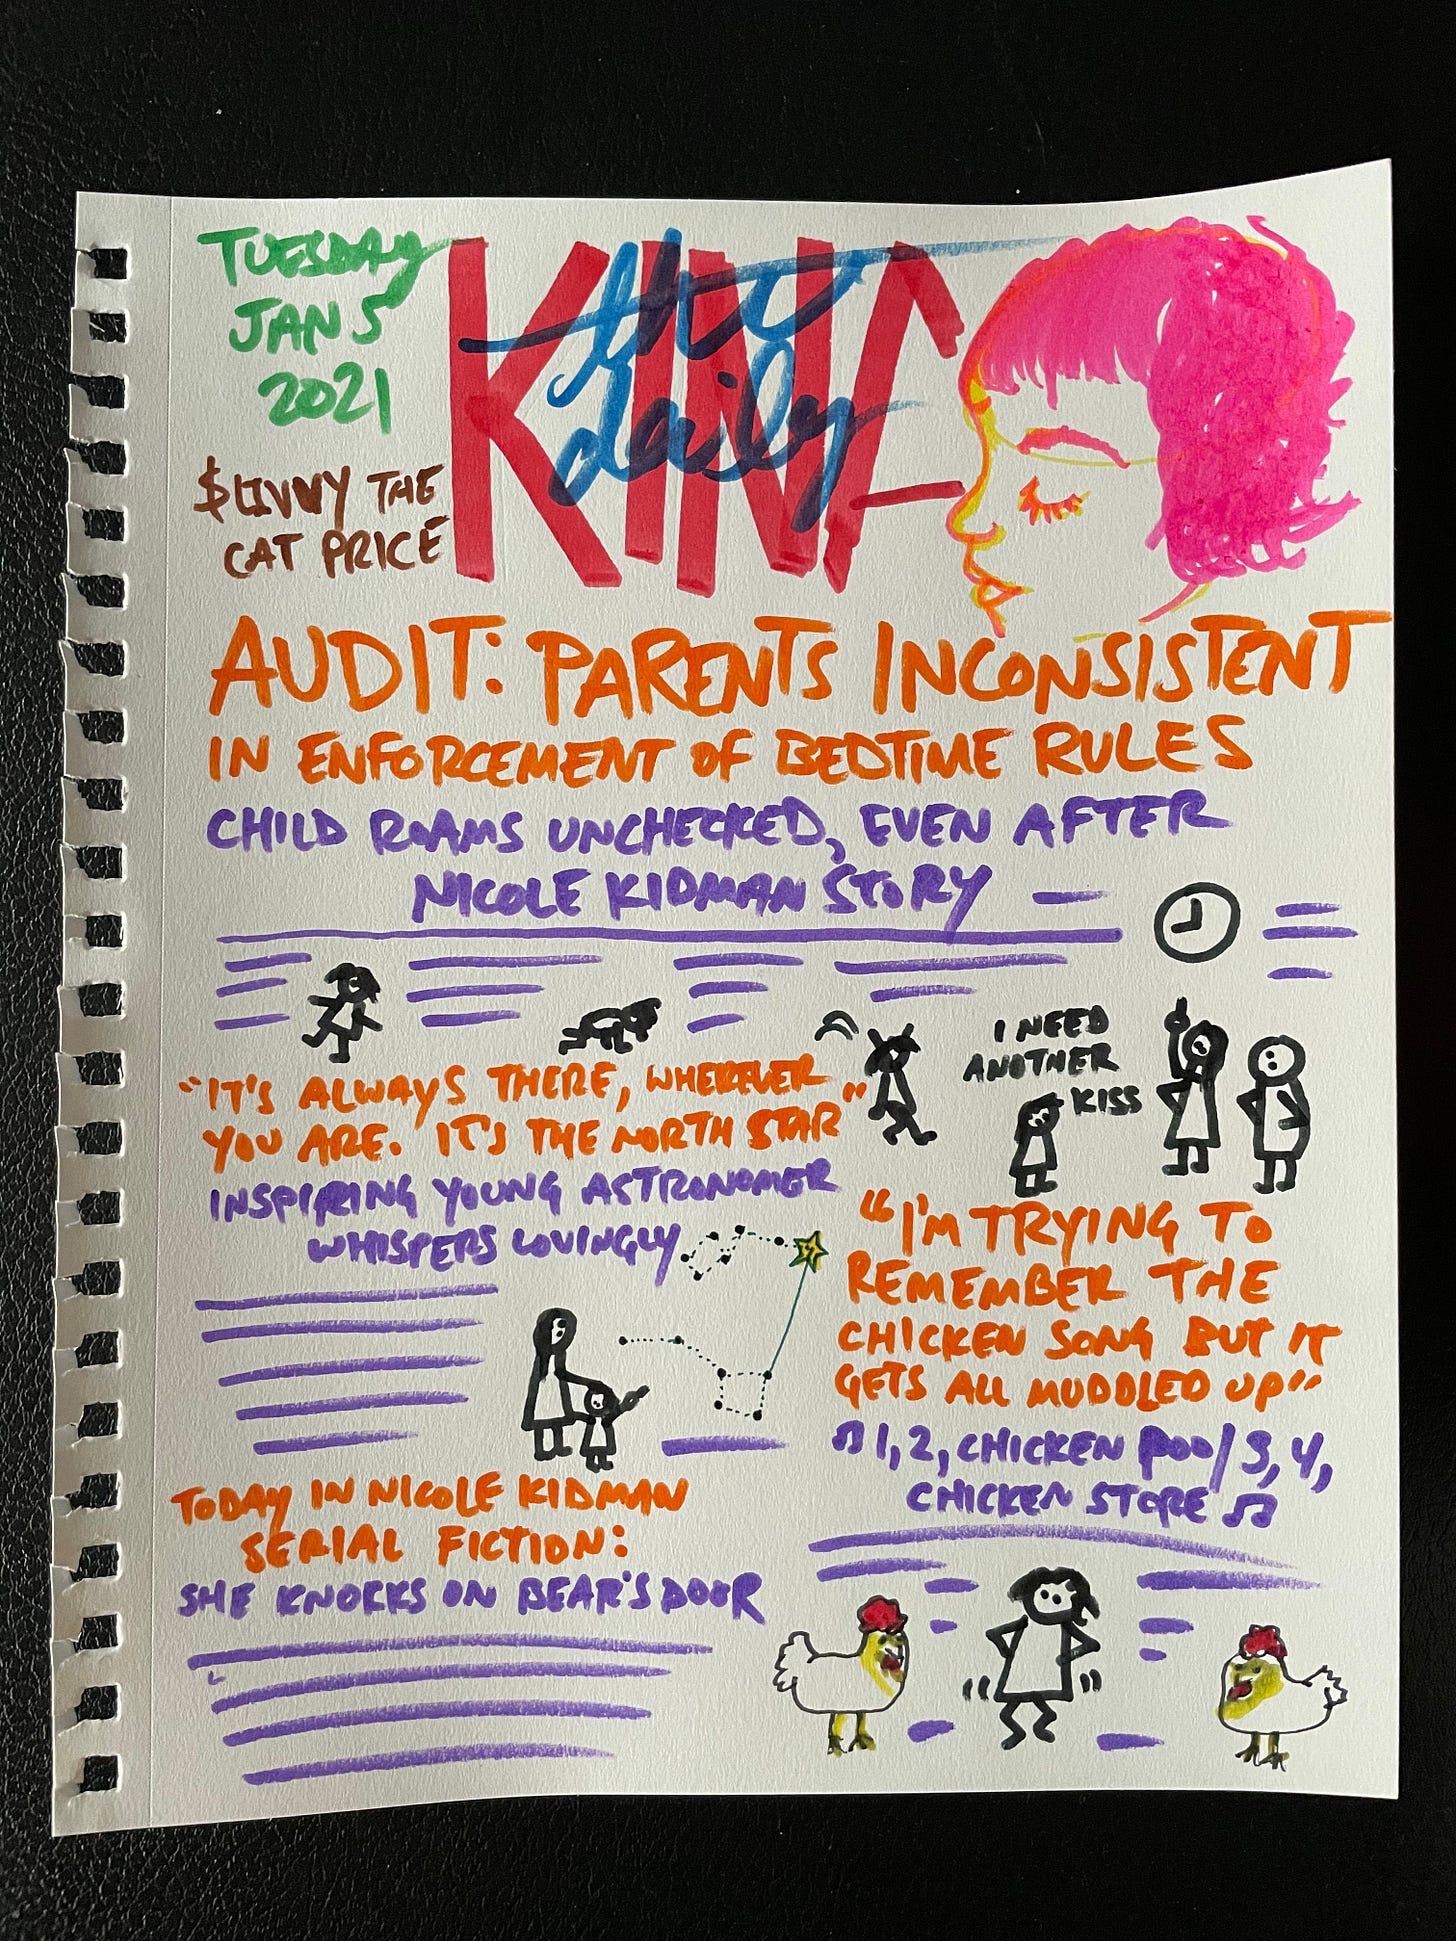 TUESDAY
JAN 5
2021
$LIVVY THE
CAT PRICE
the
daily
KINA
AUDIT: PARENTS INCONSISTENT
IN ENFORCEMENT OF BEDTIME RULES
CHILD ROAMS UNCHECKED, EVEN AFTER
NICOLE KIDMAN STORY
I NEED
ANOTHER
KISS
"IT'S ALWAYS THERE, WHEREVER
YOU ARE. IT'S THE NORTH STAR"
INSPIRING YOUNG ASTRONOMER
WHISPERS LOVINGLY
"I'M TRYING TO
REMEMBER THE
CHICKEN SONG BUT IT
GETS ALL MUDDLED UP"
♫ 1, 2, CHICKEN POO / 3, 4,
CHICKEN STORE ♫
TODAY IN NICOLE KIDMAN
SERIAL FICTION:
SHE KNOCKS ON BEAR'S DOOR